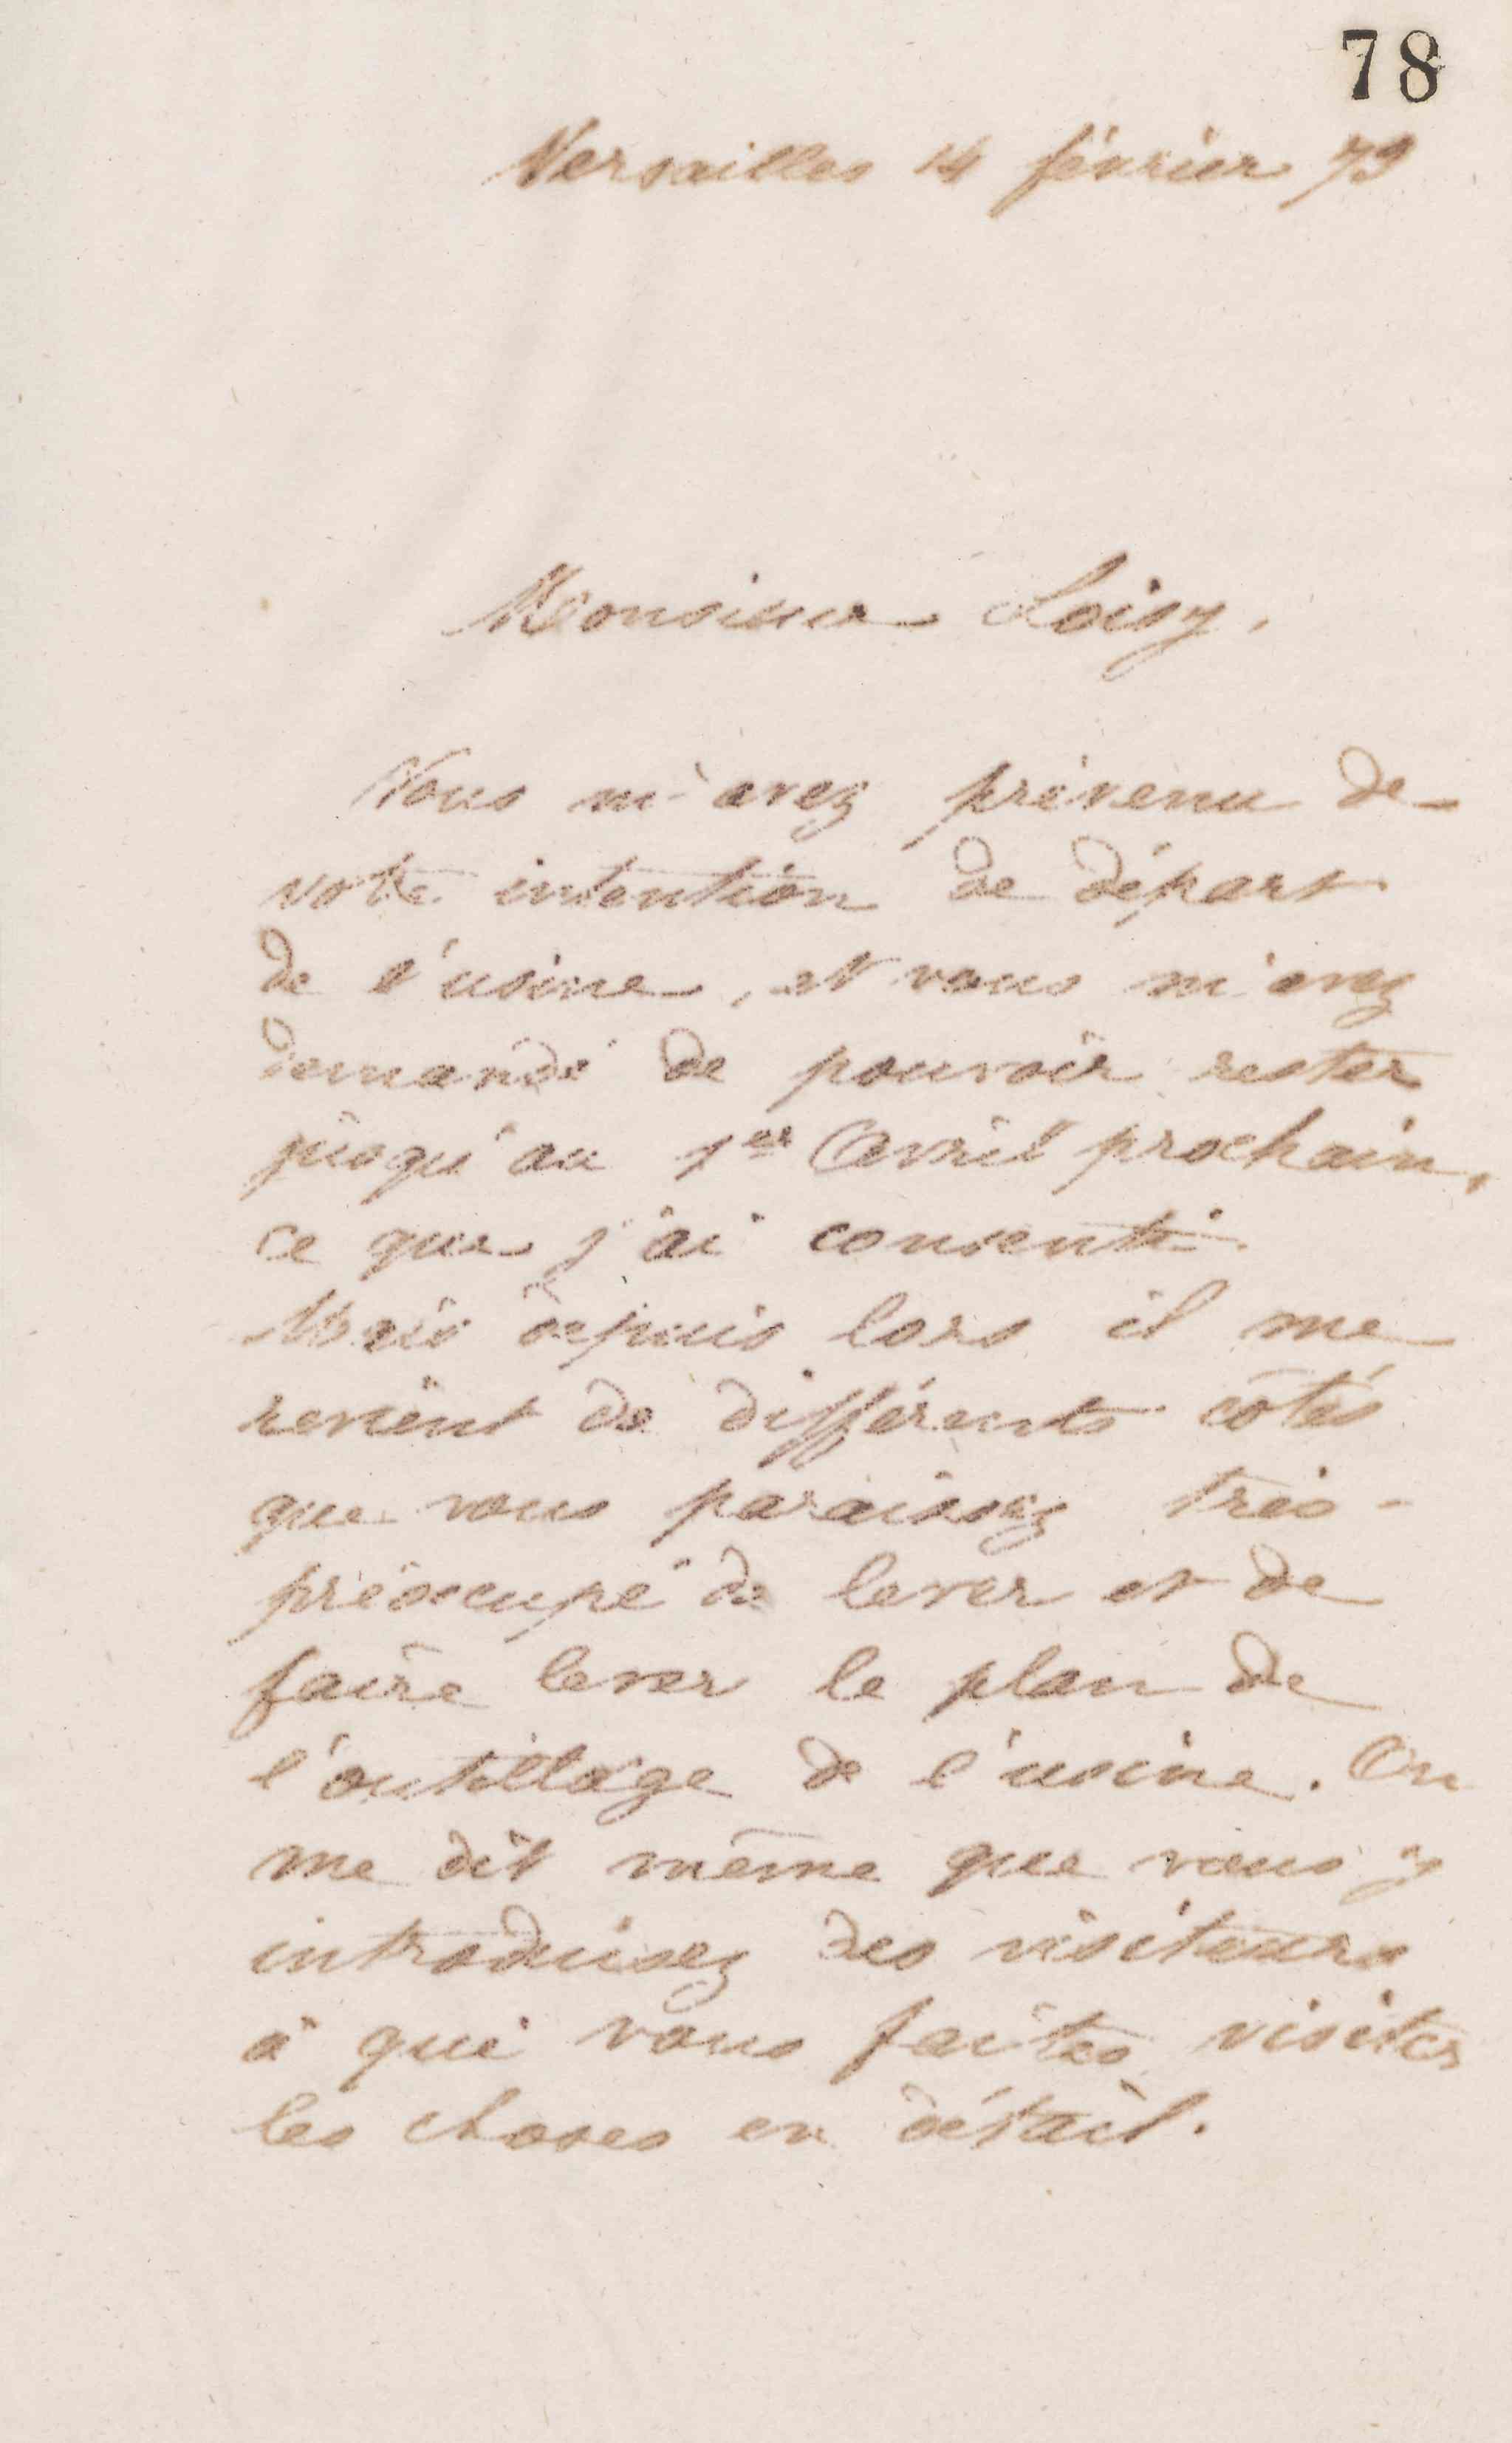 78
Versailles 14 février 79
Monsieur Loisy,
Vous m'avez prévenu de
votre intention de départ
de l'usine, et vous m'avez
demandé de pouvoir rester
jusqu'au 1er Avril prochain,
ce que j'ai consenti.
Mais depuis lors il me
revient de différents côtés
que vous paraissez très-
préoccupé de lever et de
faire lever le plan de
l'outillage de l'usine. On
me dit même que vous y
introduisez des visiteurs
à qui vous faites visiter
les choses en détail.